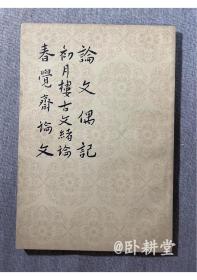 論文偶記
初月樓古文緒論
春覺齋論文
@卧耕堂